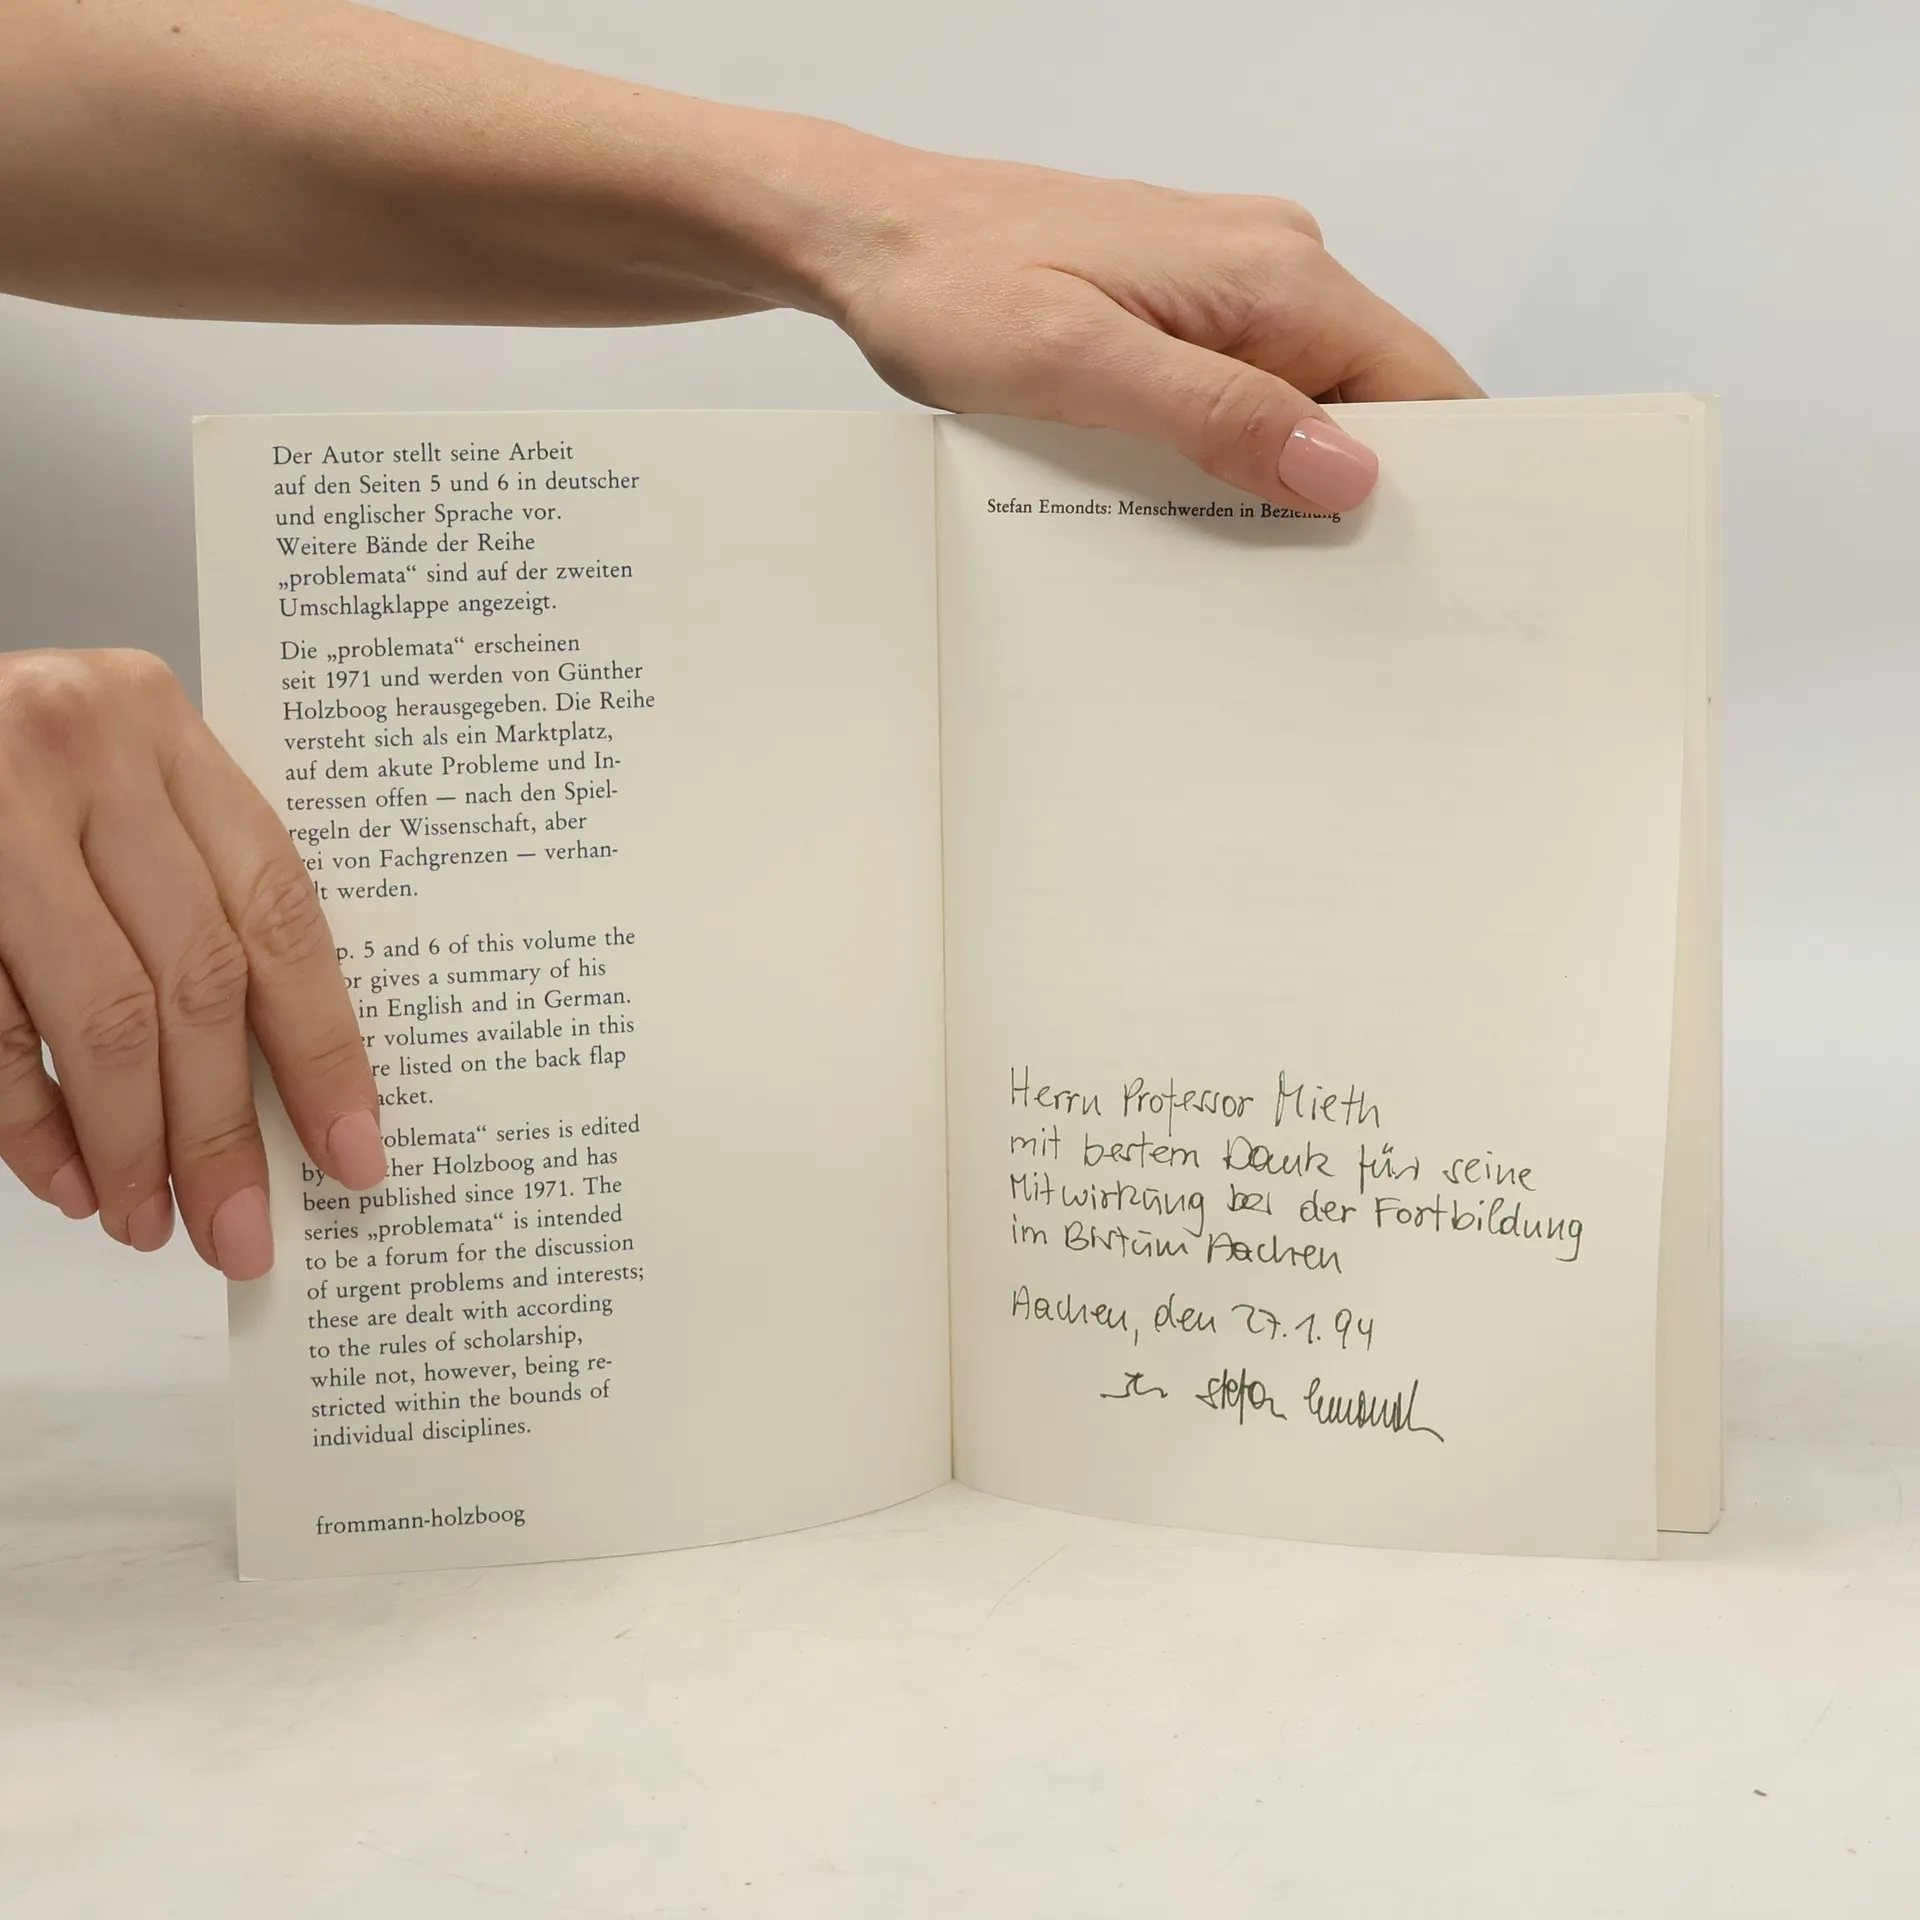 Der Autor stellt seine Arbeit
auf den Seiten 5 und 6 in deutscher
und englischer Sprache vor.
Weitere Bände der Reihe
„problemata“ sind auf der zweiten
Umschlagklappe angezeigt.
Die „problemata“ erscheinen
seit 1971 und werden von Günther
Holzboog herausgegeben. Die Reihe
versteht sich als ein Marktplatz,
auf dem akute Probleme und In-
teressen offen — nach den Spiel-
regeln der Wissenschaft, aber
rei von Fachgrenzen — verhan-
lt werden.
p. 5 and 6 of this volume the
or gives a summary of his
in English and in German.
r volumes available in this
re listed on the back flap
acket.
roblemata“ series is edited
by ther Holzboog and has
been published since 1971. The
series „problemata“ is intended
to be a forum for the discussion
of urgent problems and interests;
these are dealt with according
to the rules of scholarship,
while not, however, being re-
stricted within the bounds of
individual disciplines.
frommann-holzboog
Stefan Emondts: Menschwerden in Beziehung
Herrn Professor Mieth
mit bestem Dank für seine
Mitwirkung bei der Fortbildung
im Bistum Aachen
Aachen, den 27.1.94
Stefan Emondts